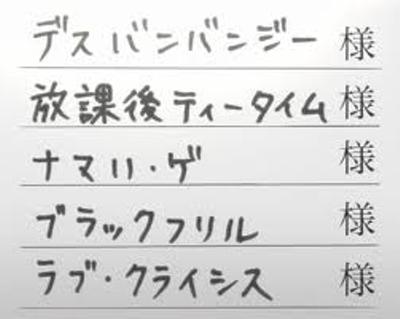 デスバンバンジー 様
放課後ティータイム 様
ナマハ・ゲ 様
ブラックフリル 様
ラブ・クライシス 様